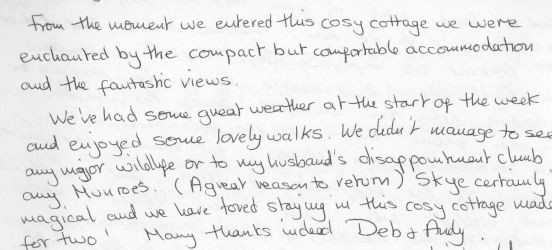 From the moment we entered this cosy cottage we were
enchanted by the compact but comfortable accommodation
and the fantastic views.
We've had some great weather at the start of the week
and enjoyed some lovely walks. We didn't manage to see
any major wildlife or to my husband's disappointment climb
any Munroes. (A great reason to return) Skye certainly
magical and we have loved staying in this cosy cottage made
for two! Many thanks indeed Deb & Andy